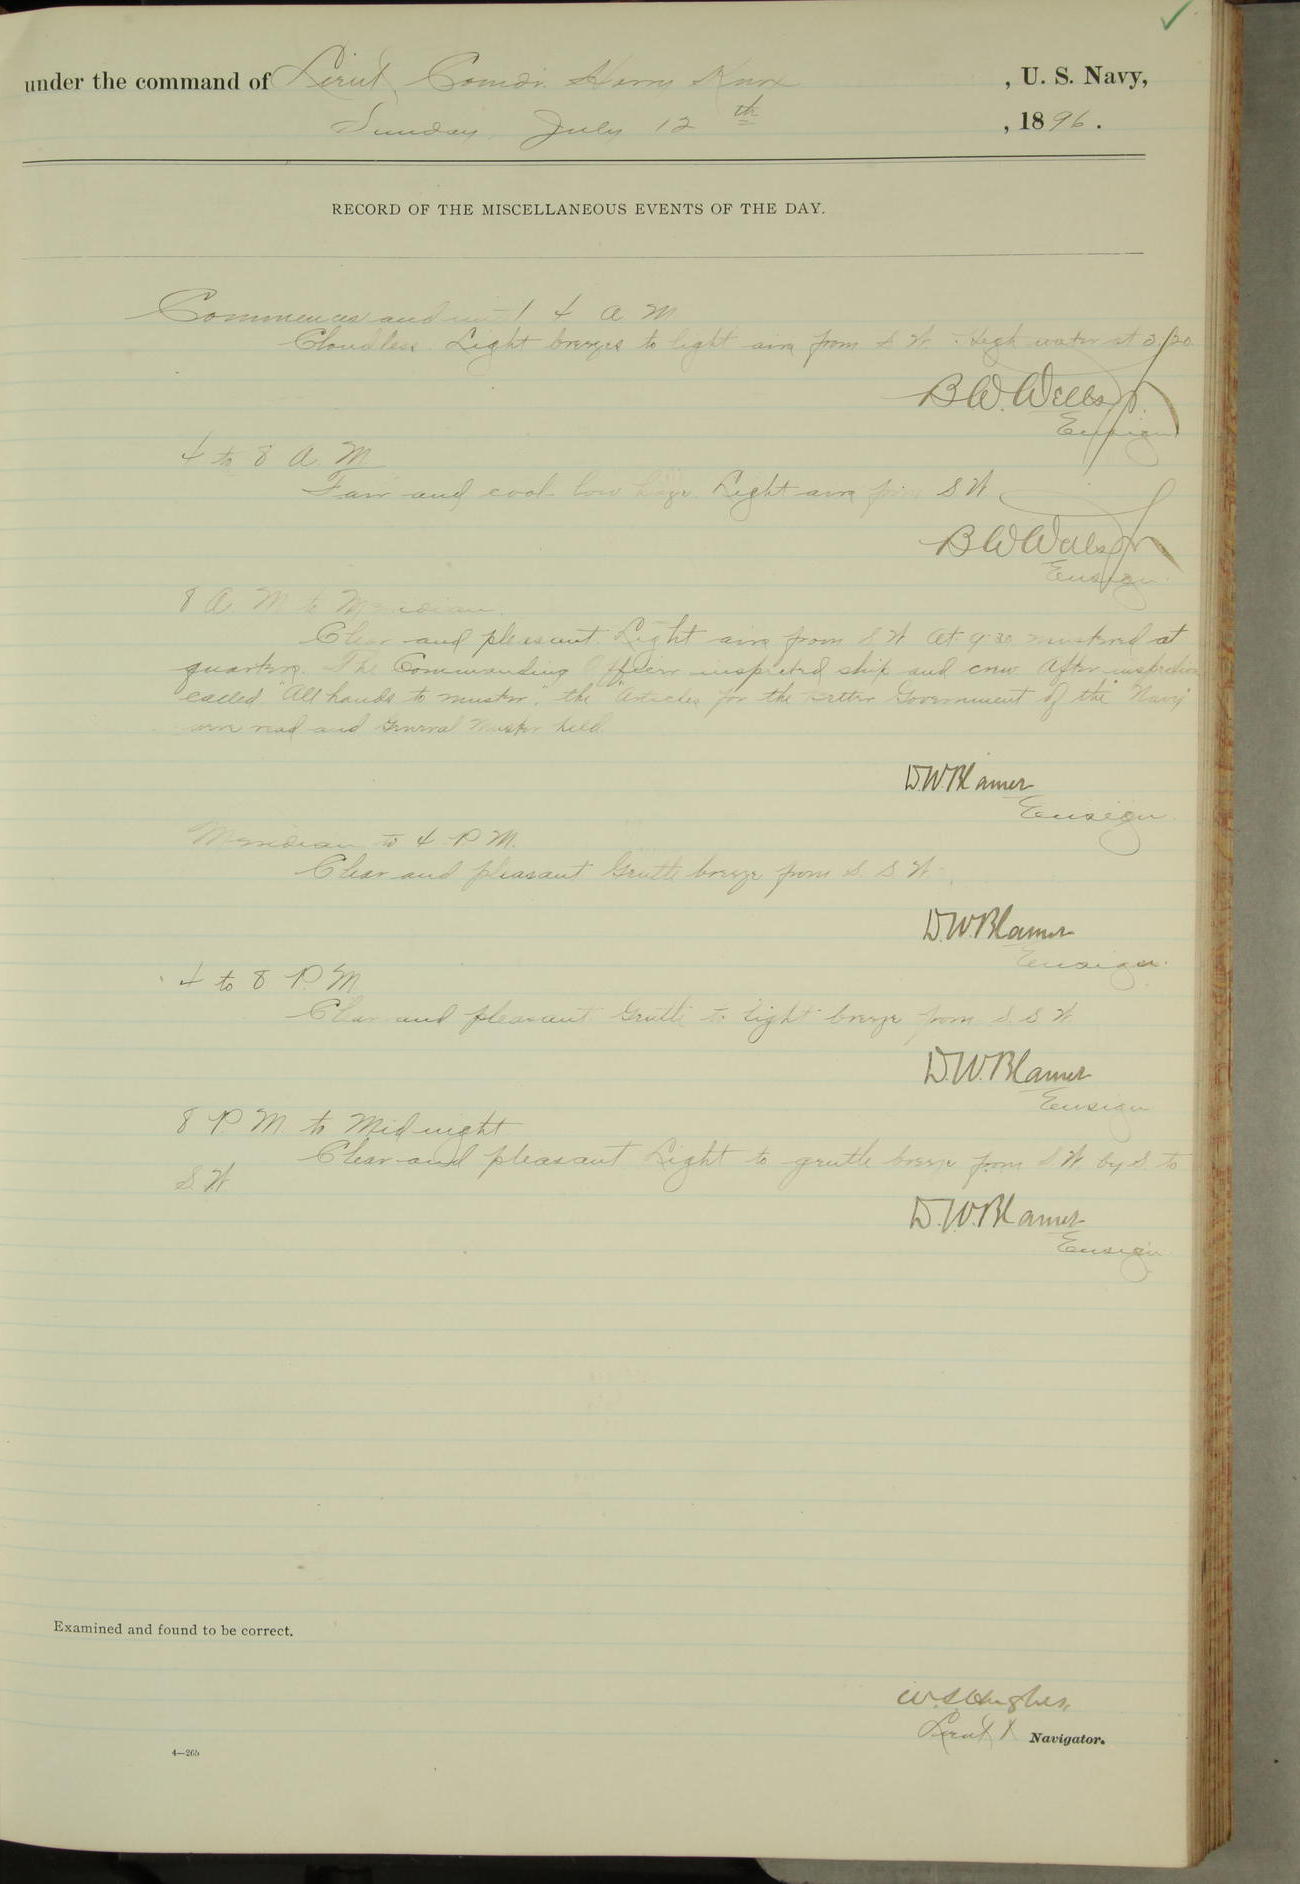 under the command of Lieut. Comdr. Harry Knox , U. S. Navy,
Sunday, July 12th , 1896.
RECORD OF THE MISCELLANEOUS EVENTS OF THE DAY.
Commences and until 4 A M
Cloudless. Light breezes to light airs from S W. High water at 3/20
B W. Wells Jr.
Ensign
4 to 8 A. M
Fair and cool low haze. Light airs from S W.
B W Wells Jr
Ensign.
8 A. M to Meridian.
Clear and pleasant. Light airs from S W At 9:30 mustered at
quarters. The Commanding Officer inspected ship and crew After inspection
called "All hands to muster", the Articles for the Better Government of the Navy
were read and General Muster held.
D.W. Blamer
Ensign.
Meridian to 4 P. M.
Clear and pleasant Gentle breeze from S. S. W.
D. W. Blamer
Ensign.
4 to 8 P. M
Clear and pleasant Gentle to light breeze from S. S W
D. W. Blamer
Ensign
8 P M. to Midnight
Clear and pleasant Light to gentle breeze from S. W. by S. to
S. W.
D. W. Blamer
Ensign
Examined and found to be correct.
W. S. Hughes,
Lieut & Navigator.
4—265